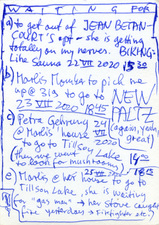 WAITING FOR
a) to get out of JEAN BETAN-
COURT'S apt - she is getting
totally on my nerves. BIKING-
Like Sauna 22 VII 2020 15 30
b) Marli's Mounka to pick me
up @ 3's to go to NEW
23 VII 2020 18 45 PALTZ
c) Petra Gehrung 24 (again, yeah
@ Marli's house VII great)
to go to Tillson Lake 2020
(they we want Lake 14 00
to look for mushrooms)
e) Marli @ her house to go to
25 VII 2020 18 15
Tillson Lake, she is waiting
for "gas men" → her stove caught
fire yesterday → firefighters etc.